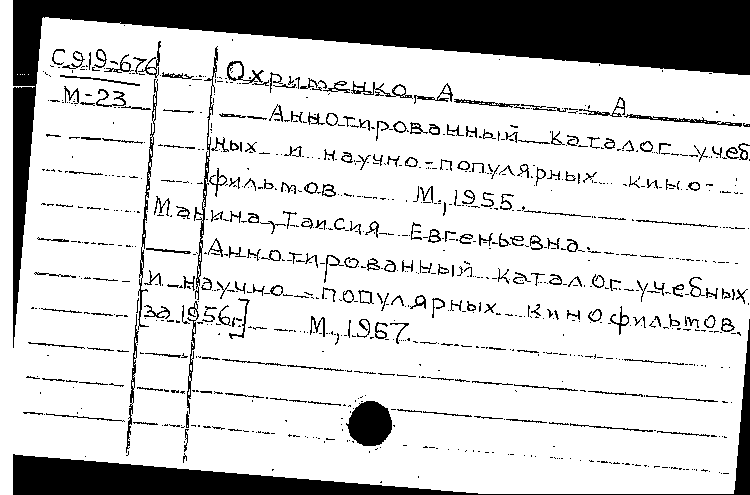 С919-676
М-23
Охрименко, А А
Аннотированный каталог учеб
ных и научно-популярных кино-
фильмов М., 1955.
Манина, Таисия Евгеньевна.
Аннотированный каталог учебных
и научно-популярных кинофильмов.
[за 1956г.] М., 1957.